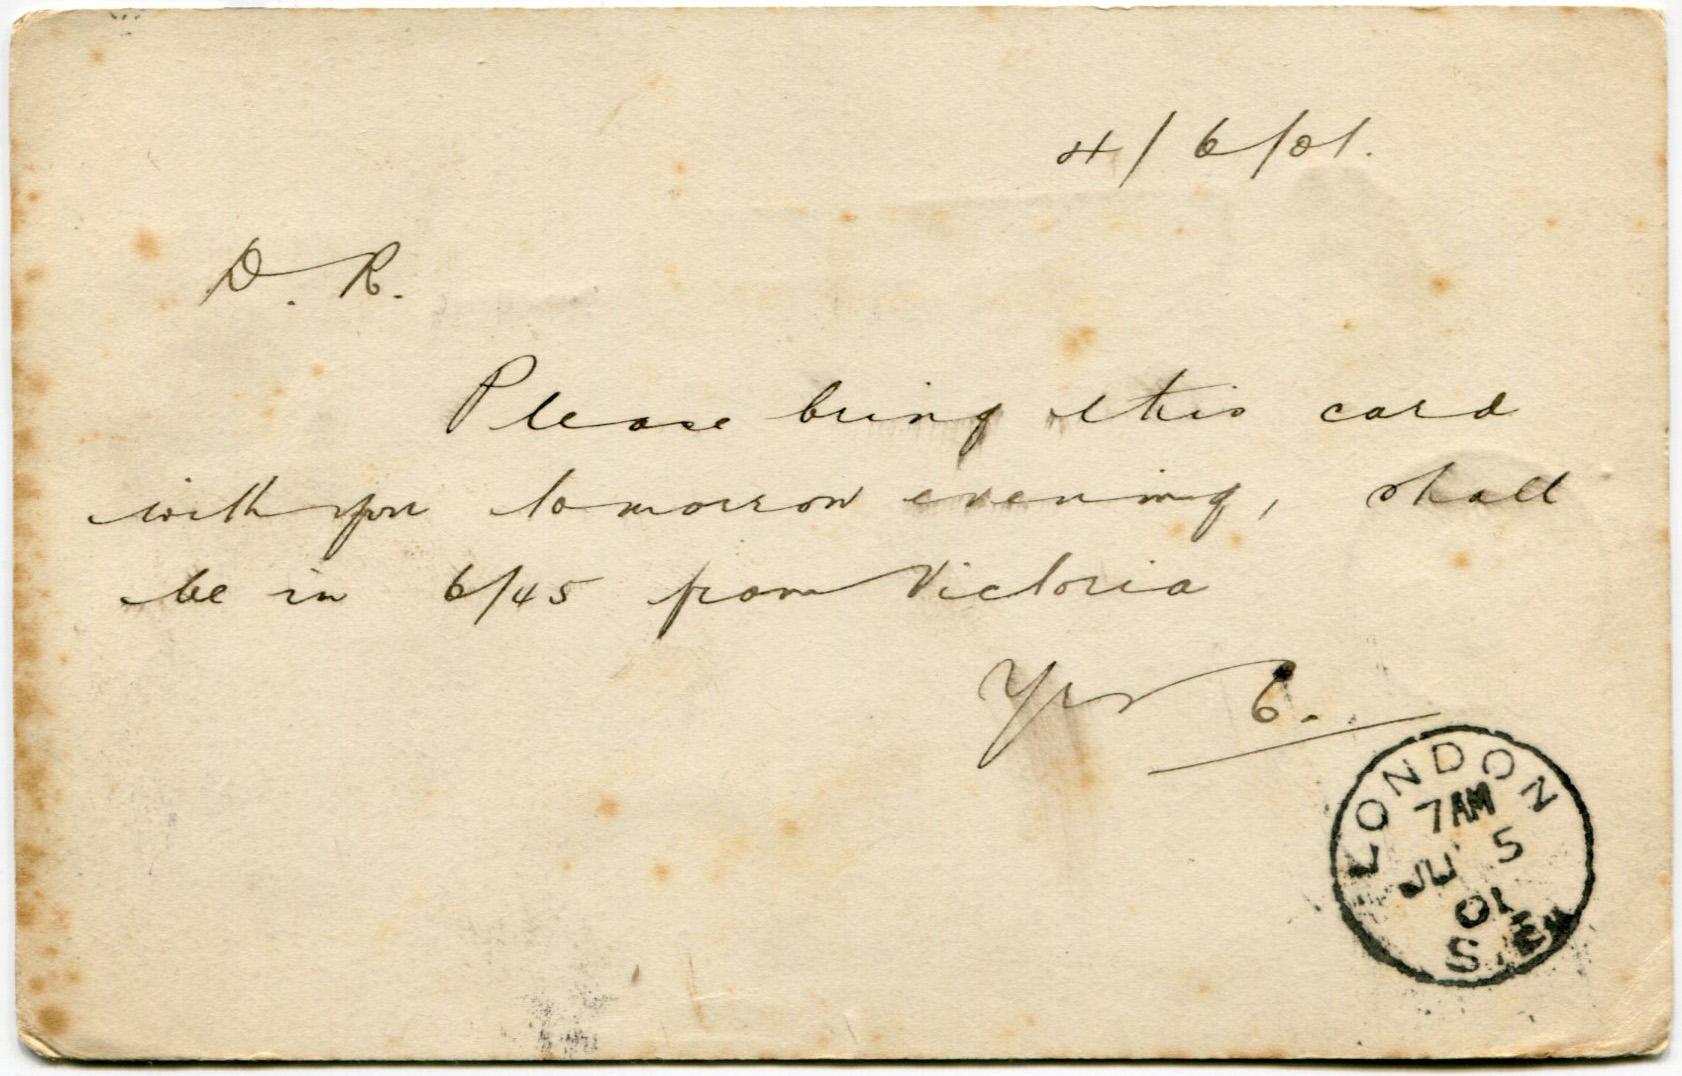 4/6/01.
D. R.
Please bring this card
with you tomorrow evening, shall
be in 6/45 from Victoria
Yrs C.
LONDON
7 AM
JU 5
01
S.E.